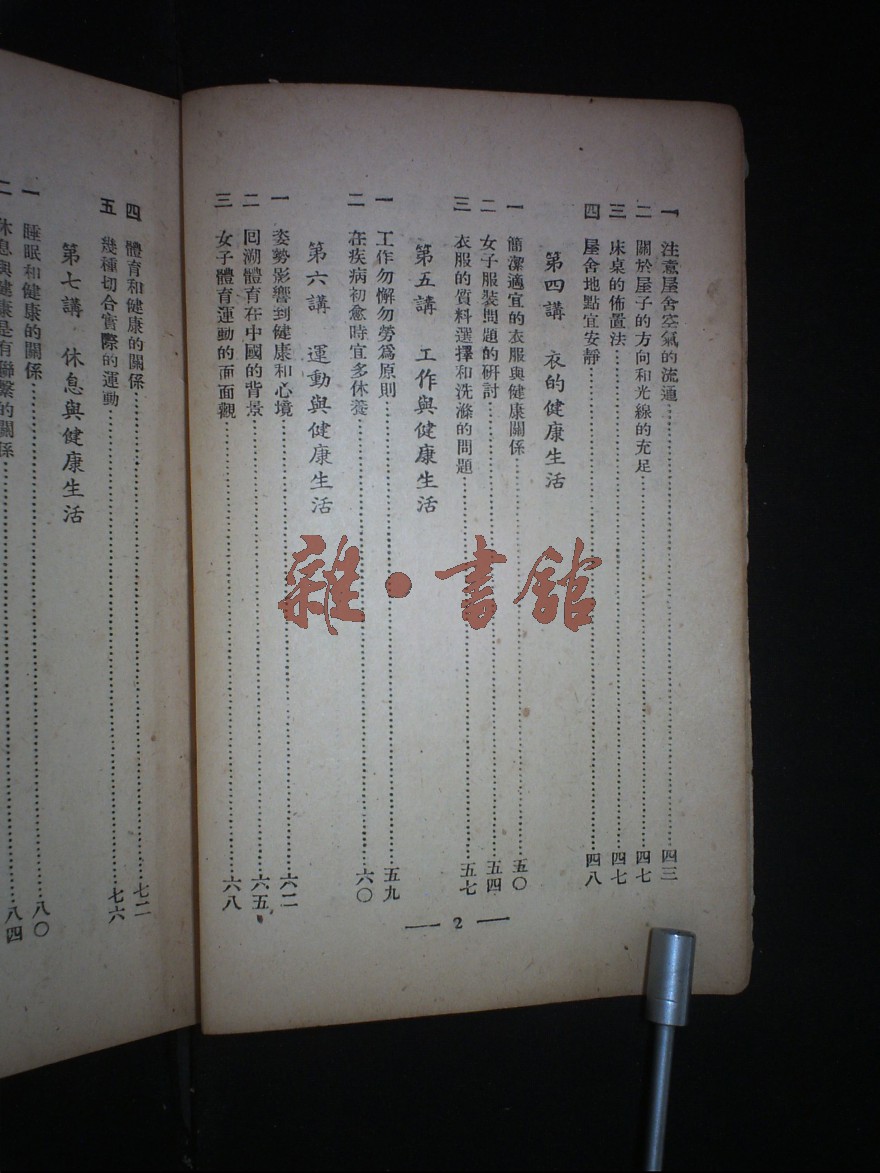 一 注意屋舍空氣的流通……四三
二 關於屋子的方向和光線的充足……四七
三 床桌的佈置法……四七
四 屋舍地點宜安靜……四八
第四講 衣的健康生活
一 簡潔適宜的衣服與健康關係……五〇
二 女子服裝問題的研討……五四
三 衣服的質料選擇和洗滌的問題……五七
第五講 工作與健康生活
一 工作勿懈勿勞爲原則……五九
二 在疾病初愈時宜多休養……六〇
第六講 運動與健康生活
一 姿勢影響到健康和心境……六二
二 回溯體育在中國的背景……六五
三 女子體育運動的面面觀……六八
— 2 —
四 體育和健康的關係……七二
五 幾種切合實際的運動……七六
第七講 休息與健康生活
一 睡眠和健康的關係……八〇
二 休息與健康是有聯繫的關係……八四
雜·書館